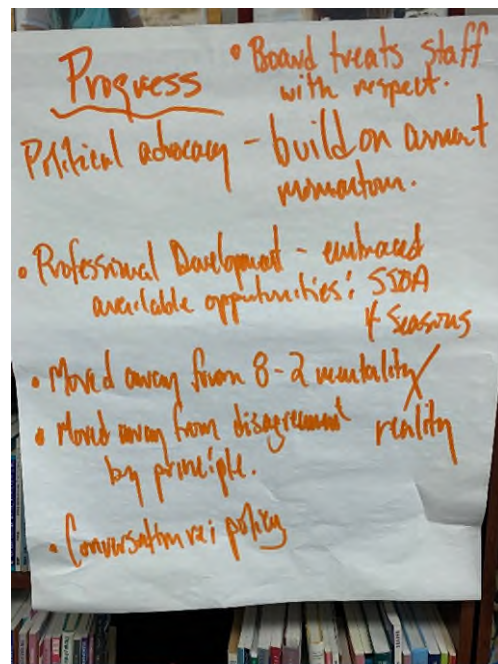 Progress
• Board treats staff
with respect.
Political advocacy - build on current
momentum.
• Professional Development - embraced
available opportunities: SSDA
4 Seasons
• Moved away from 8-2 mentality/
reality
• Moved away from disagreement
by principle.
• Conversation re: policy